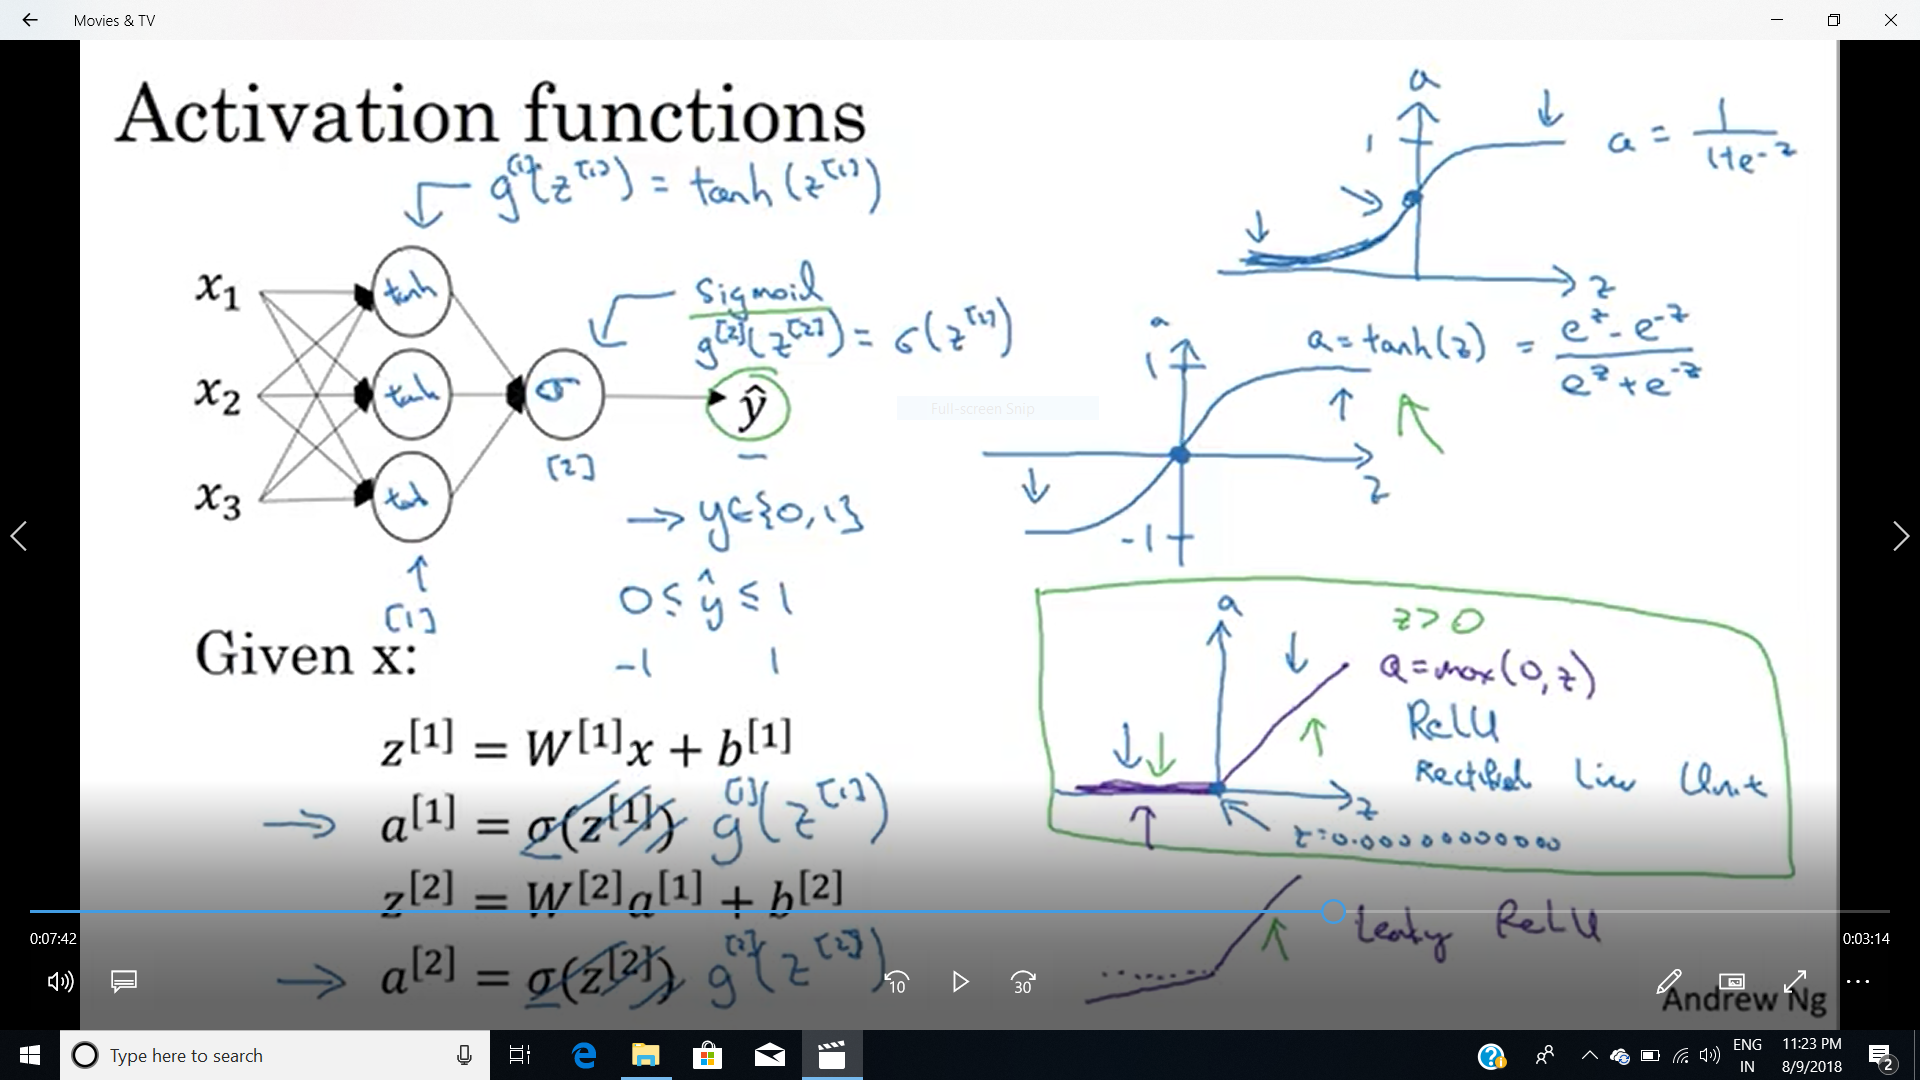 Movies & TV
Activation functions
g^[1](z^[1]) = tanh(z^[1])
x₁
x₂
x₃
tanh
tanh
σ
[1]
[2]
Sigmoid
g^[2](z^[2]) = σ(z^[2])
ŷ
y∈{0,1}
0 ≤ ŷ ≤ 1
-1 1
Given x:
z^[1] = W^[1]x + b^[1]
a^[1] = σ(z^[1]) g^[1](z^[1])
z^[2] = W^[2]a^[1] + b^[2]
a^[2] = σ(z^[2]) g^[2](z^[2])
a
1
z
a = 1/(1+e^-z)
a
1
-1
z
a = tanh(z) = (e^z - e^-z)/(e^z + e^-z)
Full-screen Snip
a
z
z > 0
a = max(0,z)
ReLU
Unit
z=0.00000000000
Leaky ReLU
Andrew Ng
0:07:42
0:03:14
10
30
Type here to search
ENG
IN
11:23 PM
8/9/2018
2